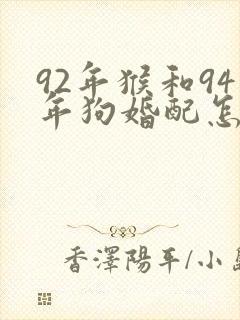 92年猴和94
年狗婚配怎
香澤陽平/小島